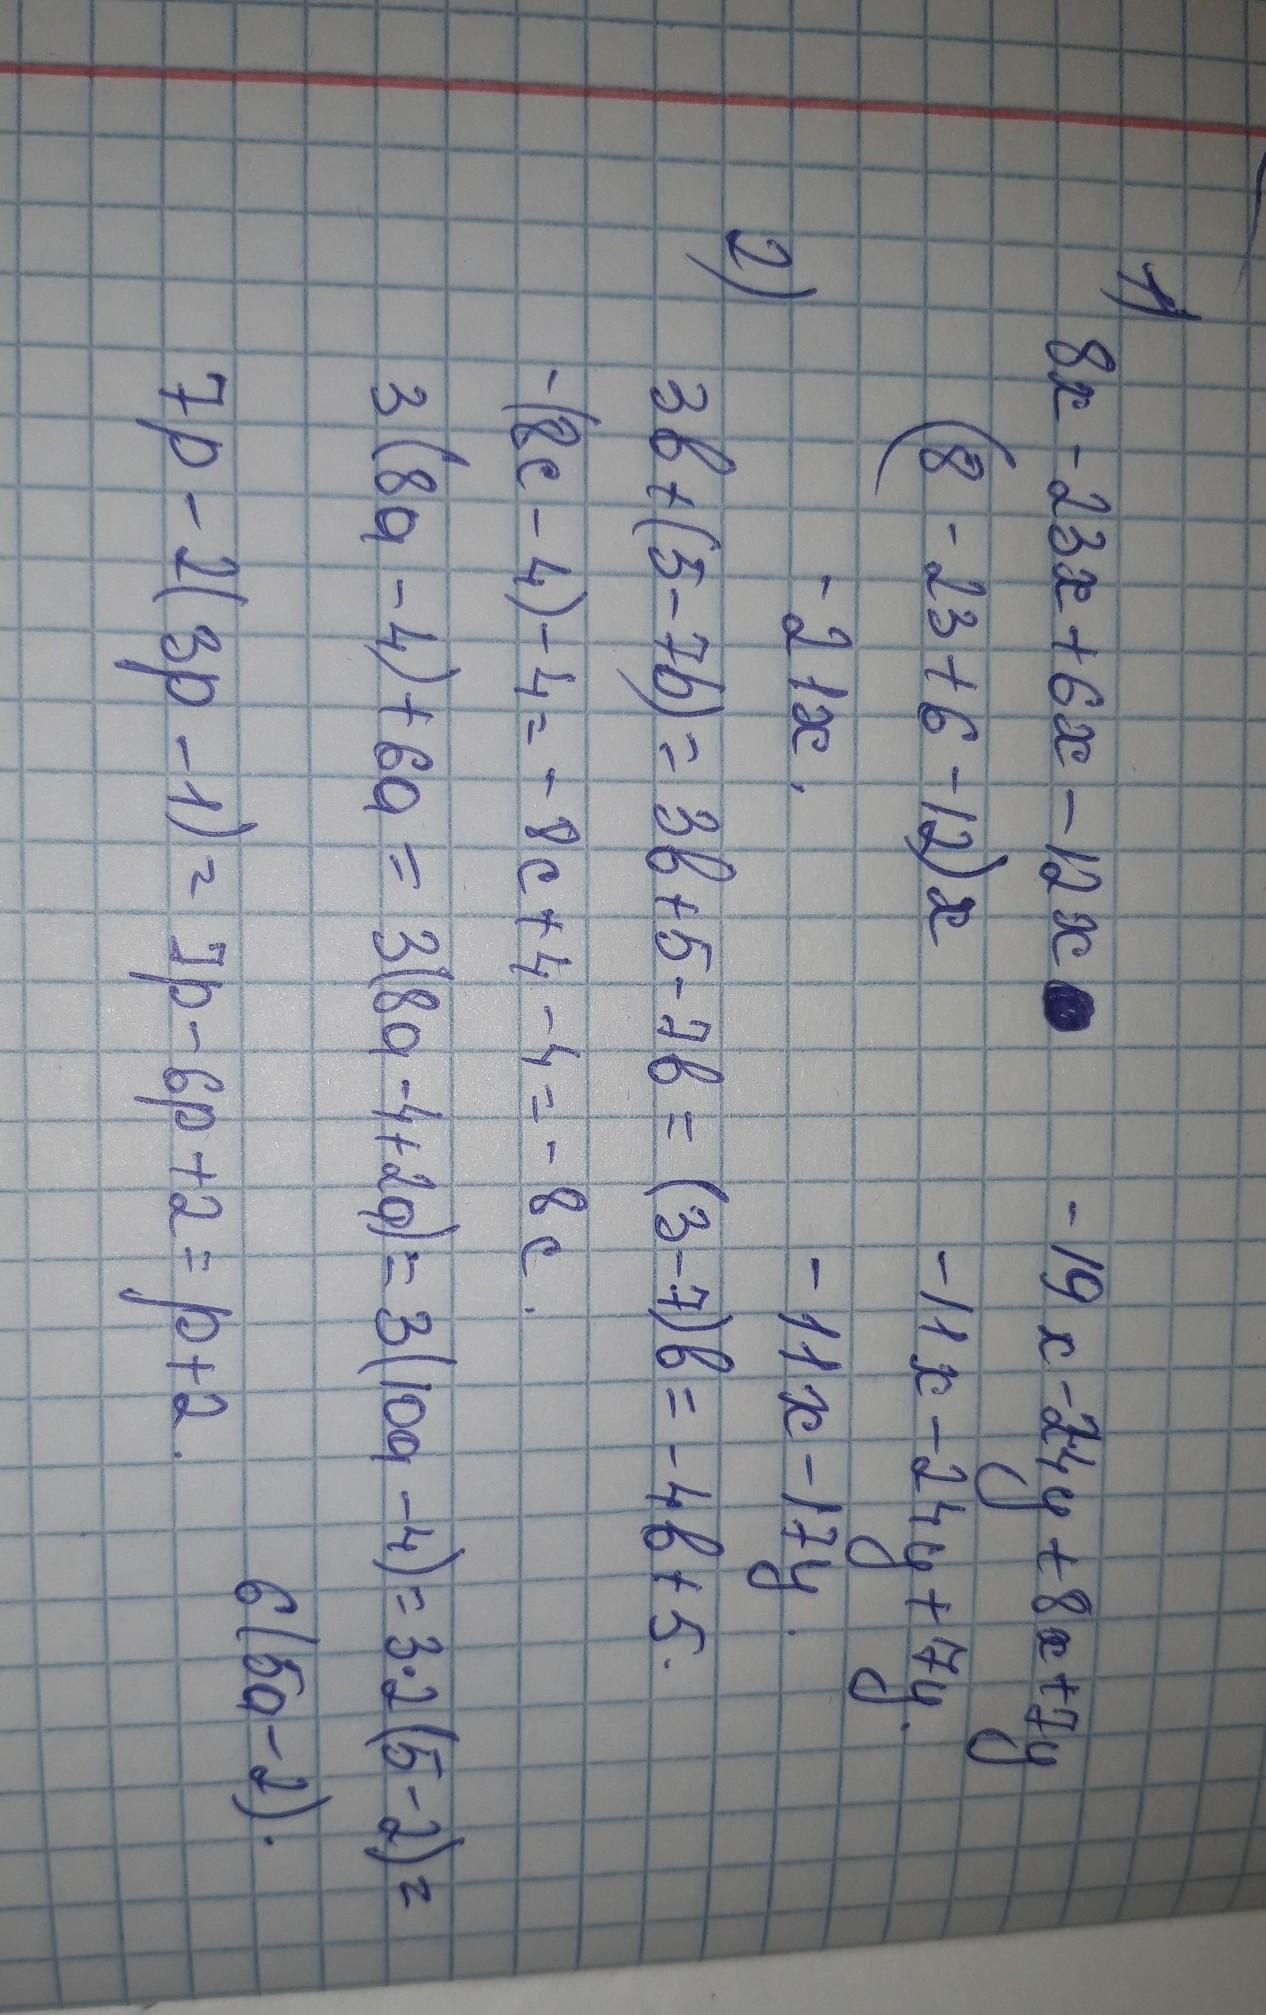 1)
8x - 23x + 6x - 12x
(8 - 23 + 6 - 12)x
- 21x.
- 19x - 24y + 8x + 7y
- 11x - 24y + 7y.
- 11x - 17y.
2)
3b + (5 - 7b) = 3b + 5 - 7b = (3 - 7)b = - 4b + 5.
-(8c - 4) - 4 = - 8c + 4 - 4 = - 8c.
3(8a - 4) + 6a = 3(8a - 4 + 2a) = 3(10a - 4) = 3·2(5 - 2) =
6(5a - 2).
7p - 2(3p - 1) = 7p - 6p + 2 = p + 2.